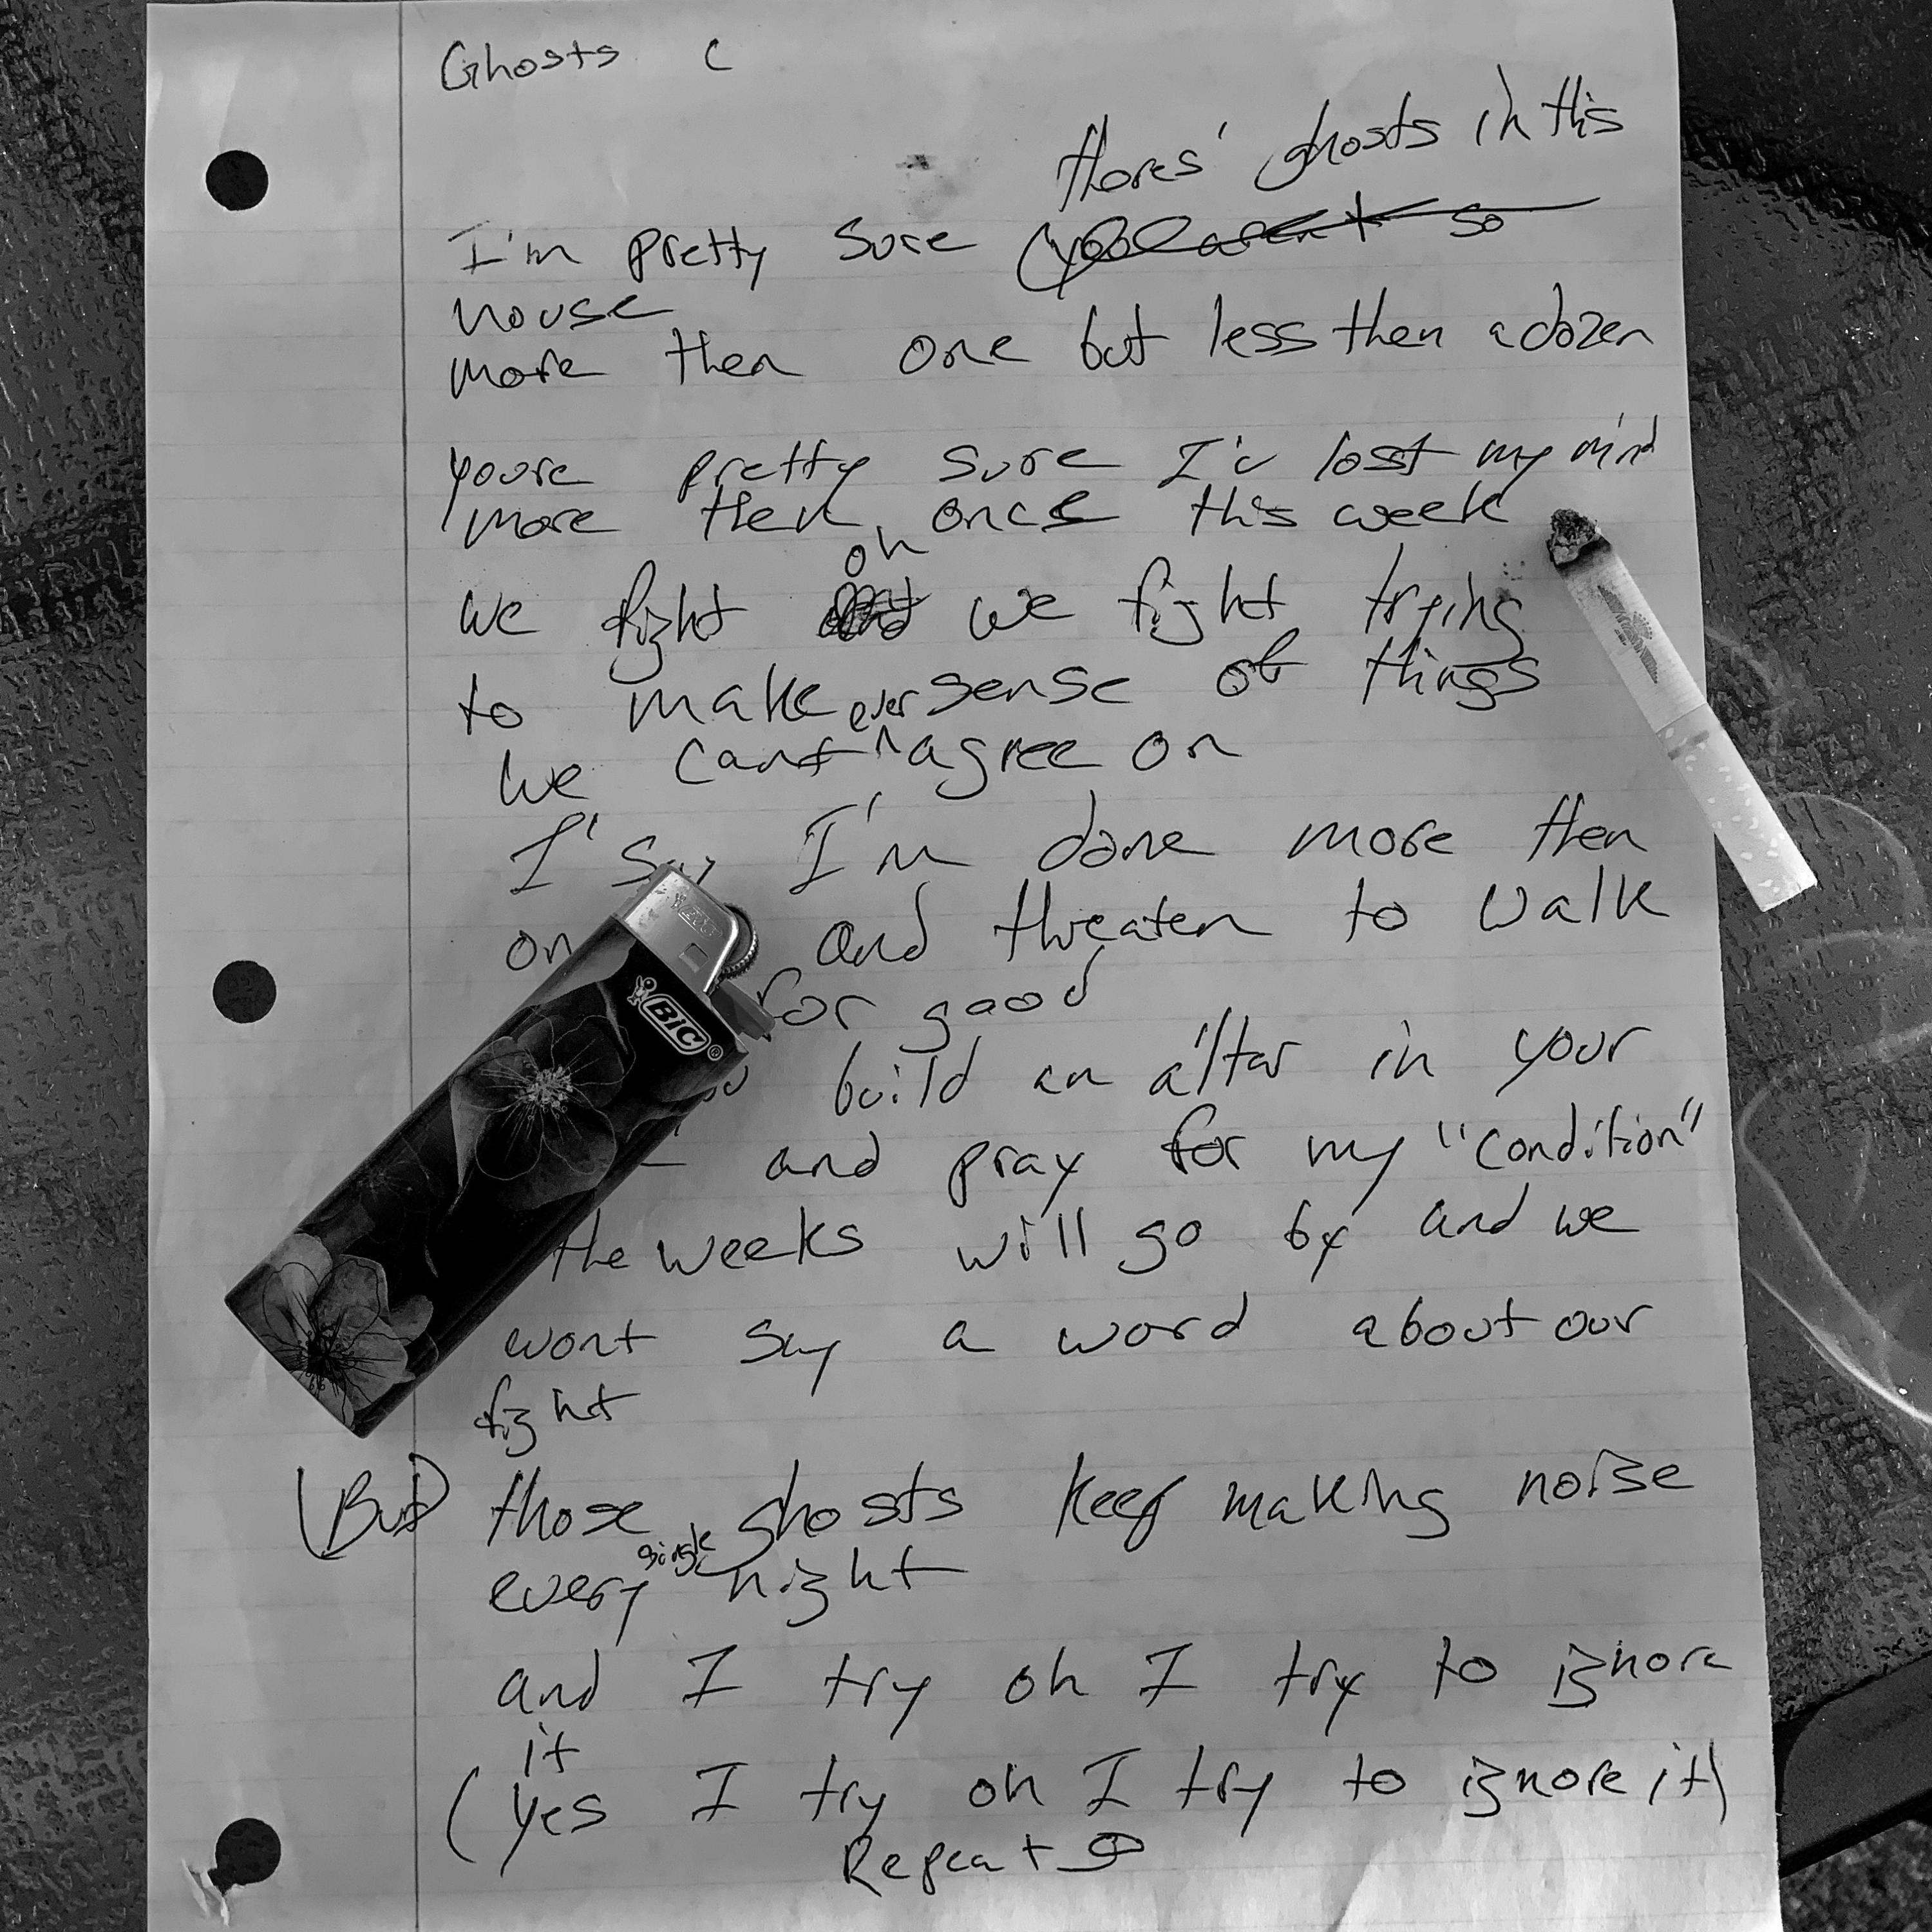 Ghosts C
theres' ghosts in this
I'm pretty sure (you arent so
house
more then one but less then a dozen
youre pretty sure I'v lost my mind
more then once this week
oh
we fight we fight trying
to make sense of things
ever
we cant ^ agree on
I'm done more then
and threaten to walk
for good
build an altar in your
and pray for my "condition"
the weeks will go by and we
wont say a word about our
fight
(But) those ghosts keep making noise
single
every night
and I try oh I try to ignore
it
(yes I try oh I try to ignore it)
Repeat
BIC